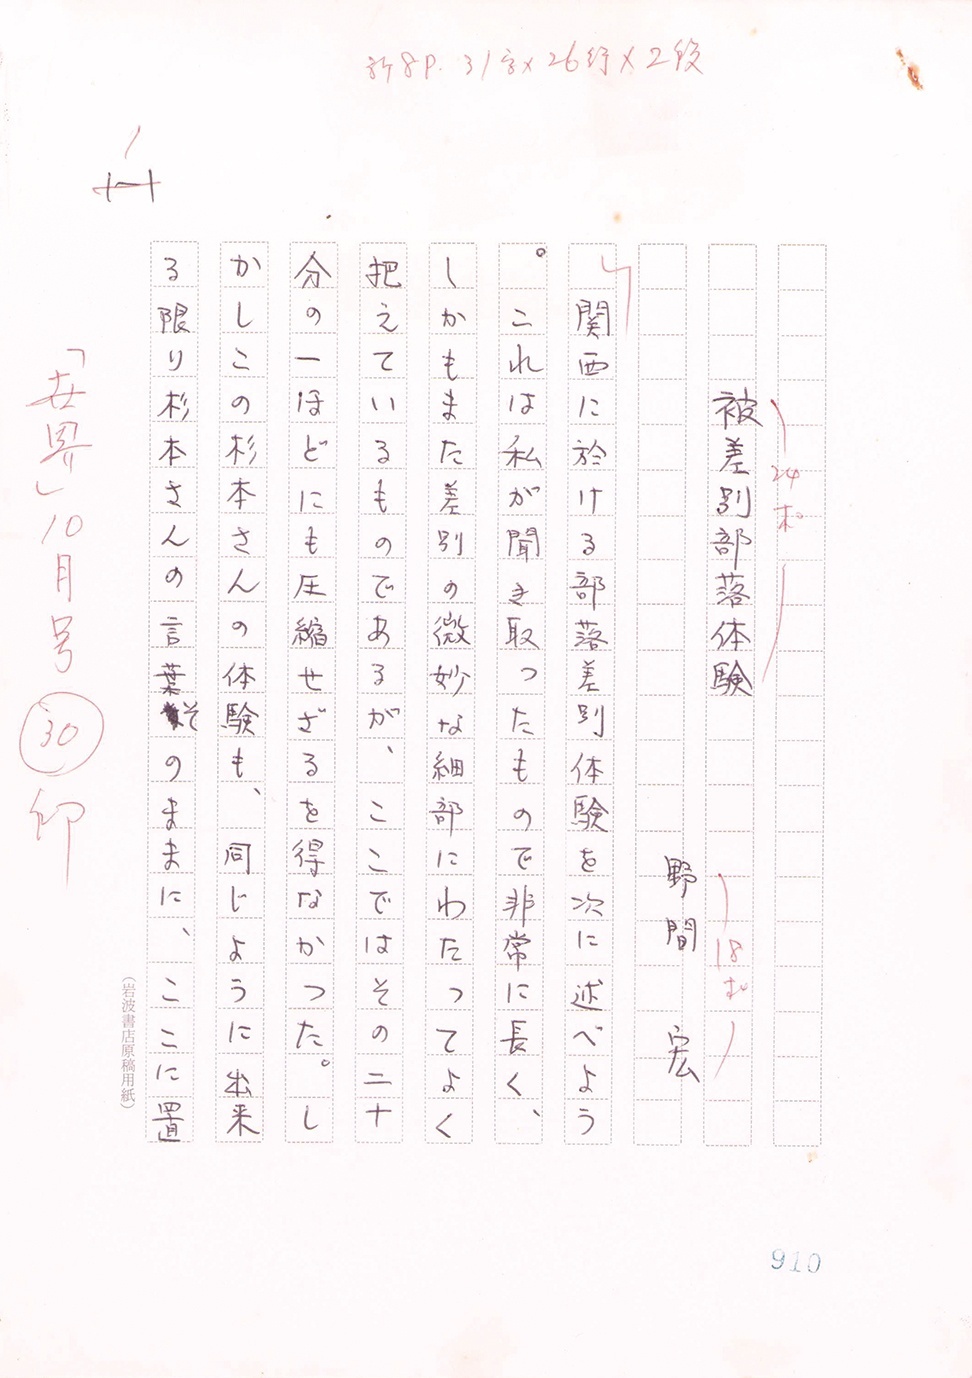 新8P. 31字×26行×2段
被差別部落体験
24ポ
野間　宏
18ポ
関西に於ける部落差別体験を次に述べよう
。これは私が聞き取ったもので非常に長く、
しかもまた差別の微妙な細部にわたってよく
把えているものであるが、ここではその二十
分の一ほどにも圧縮せざるを得なかった。し
かしこの杉本さんの体験も、同じように出来
る限り杉本さんの言葉そのままに、ここに置
（岩波書店原稿用紙）
「世界」10月号 30 印
910